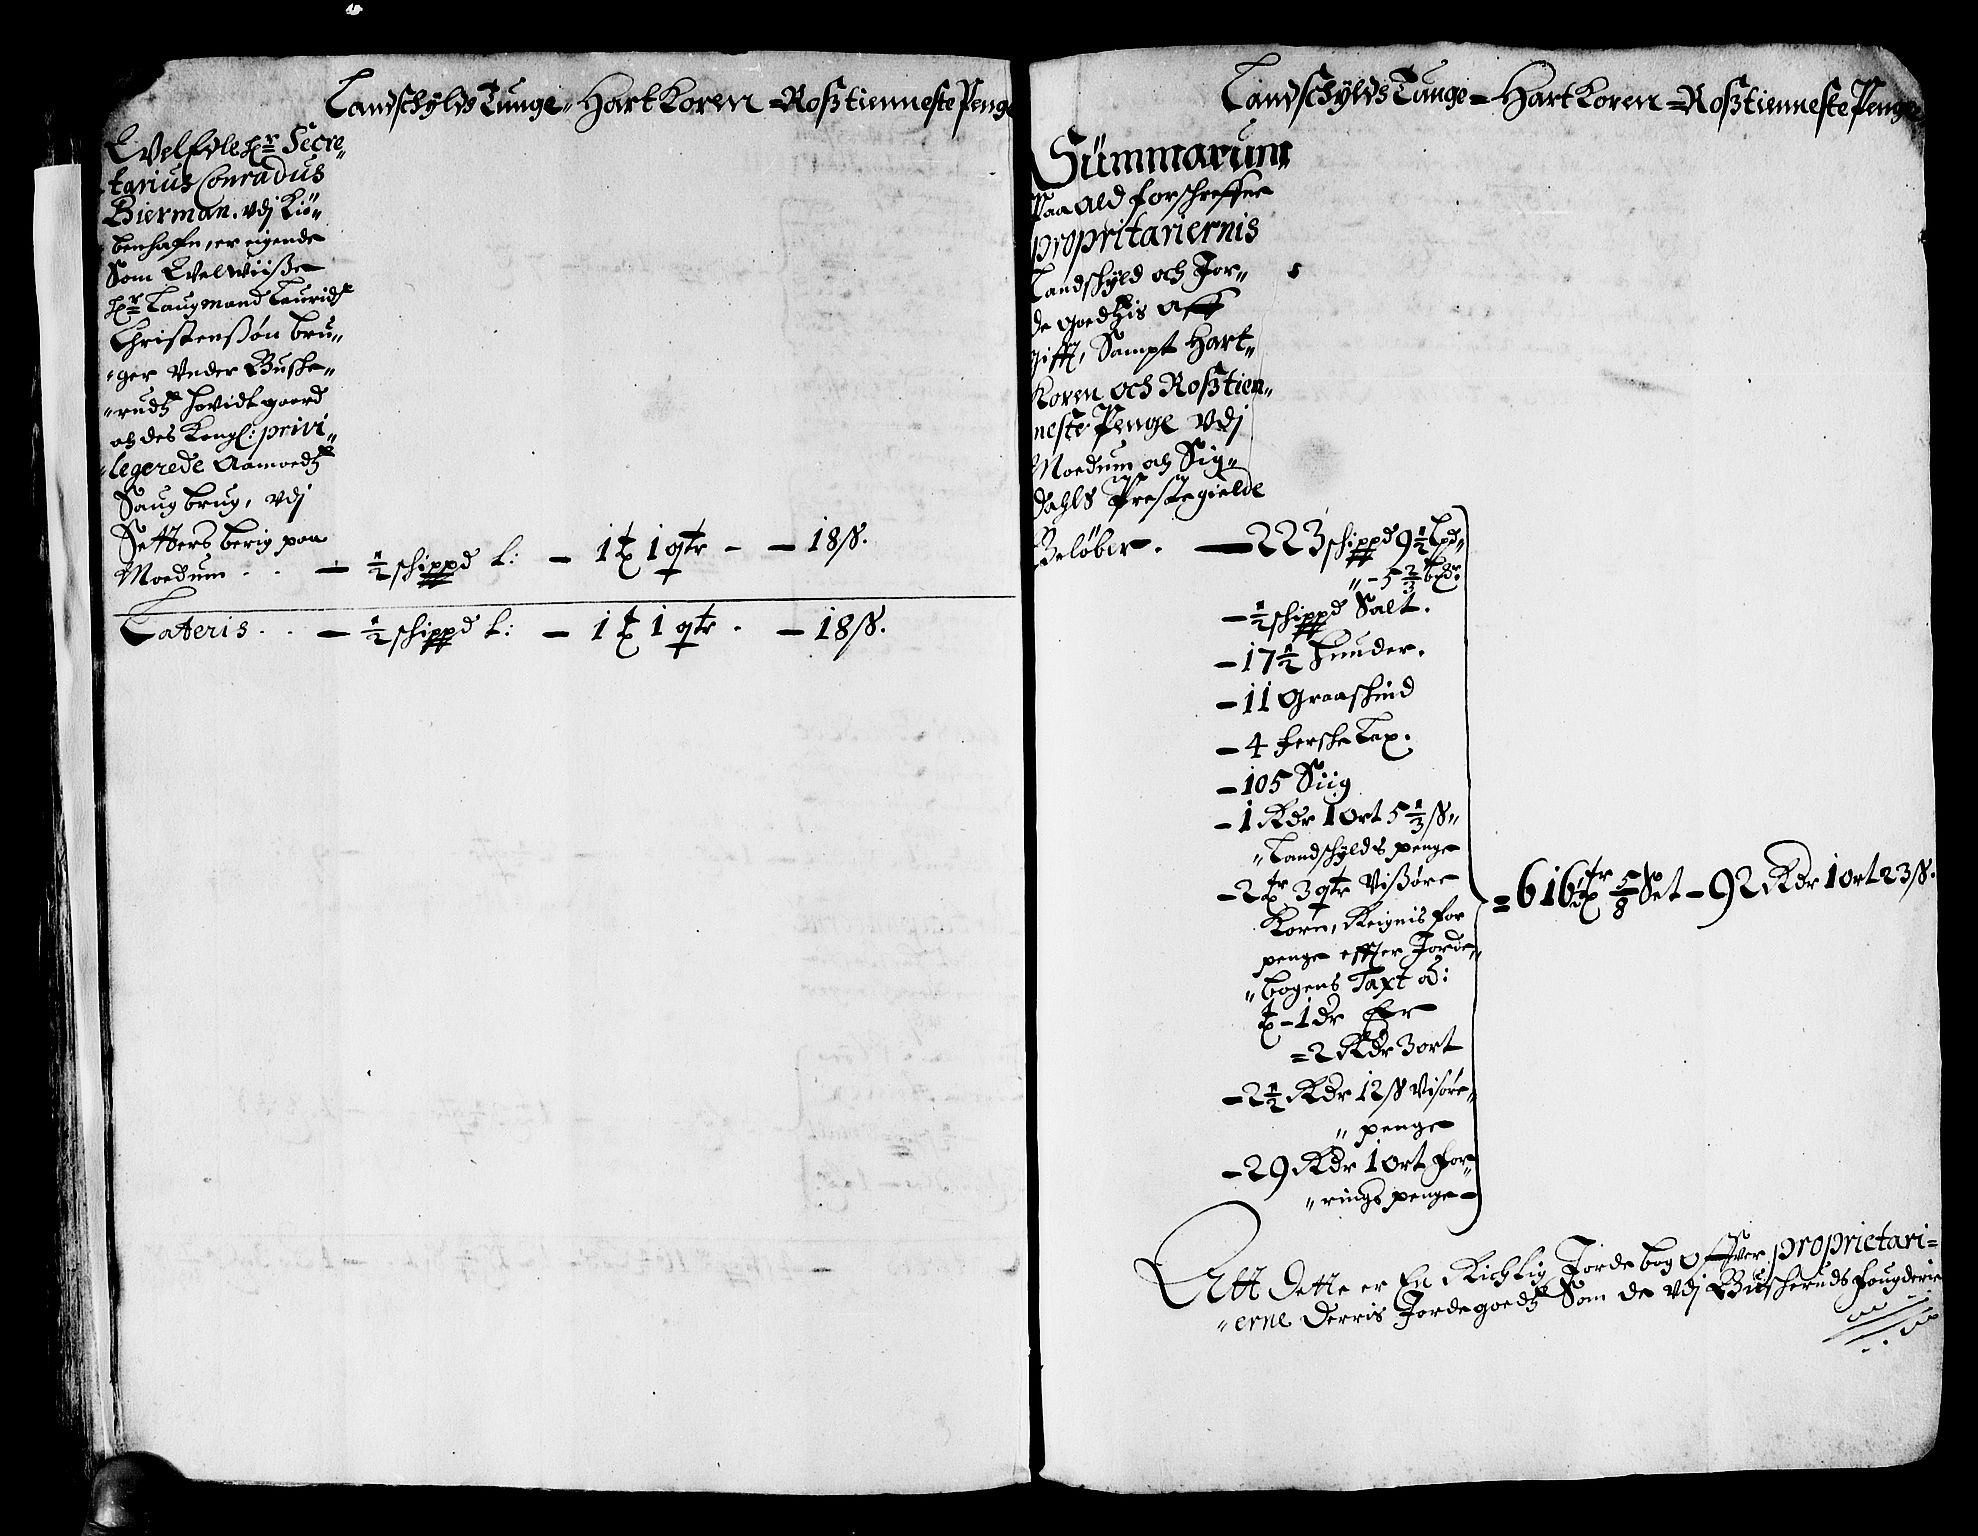 LandschyldsTunge = HartKoren = RosztiennestePenge
Welfdle Hr Secre,,
tarius Conradus
Bierman. vdj Kiö,,
benhafn, er eigende
Som Welwiisze
Hr Laugmand Lauridz
Christenszøn bru,,
,,ger Vnder Buske,,
,,rudz hovidt gaard
och des Kongl: privi,,
,,legerede Aamoedz
Saug brug, vdj
Setters berig paa
Moedum . . — ½ schippd t: — 1 t 1 qtr — — 18 ß.
Lateris . . — ½ schippd t: — 1 t 1 qtr . — 18 ß.
LandschyldsTunge = HartKoren = RosztiennestePenge
Summarum
Paa ald forschreffne
propritariernis
Landschyld och Jor,,
de goedzis aff
gifft, Sampt Hart,,
Koren och Rosztien,,
neste Penge vdj
Moedum och Sig,,
dahls Prestegielde
Beløber. — 223 schippd 9½ Lpd,,
,, – 5⅔ bpd.
— ½ schippd Salt.
— 17½ huuder.
— 11 graaskind
— 4 ferske Lax.
— 105 Siig
— 1 Rdr 1 ort 5⅓ ß,,
,,Landschylds penge
— 2 tr 3 qtr Viszøre
Korn, Reignis for
penge effter Jorde,,
,,bogens Taxt á:
t – 1 dr Er
= 2 Rdr 3 ort
— 2½ Rdr 12 ß Visøre,,
,, penge
— 29 Rdr 1 Ort for,,
,,rings penge
= 616 tr ⅝ Set – 92 Rdr 1 ort 23 ß.
Att Dette er En Richtig Jordebog Offver proprietari=
,,erne Derris Jordegoedz Som de vdj Buscheruds fougderie